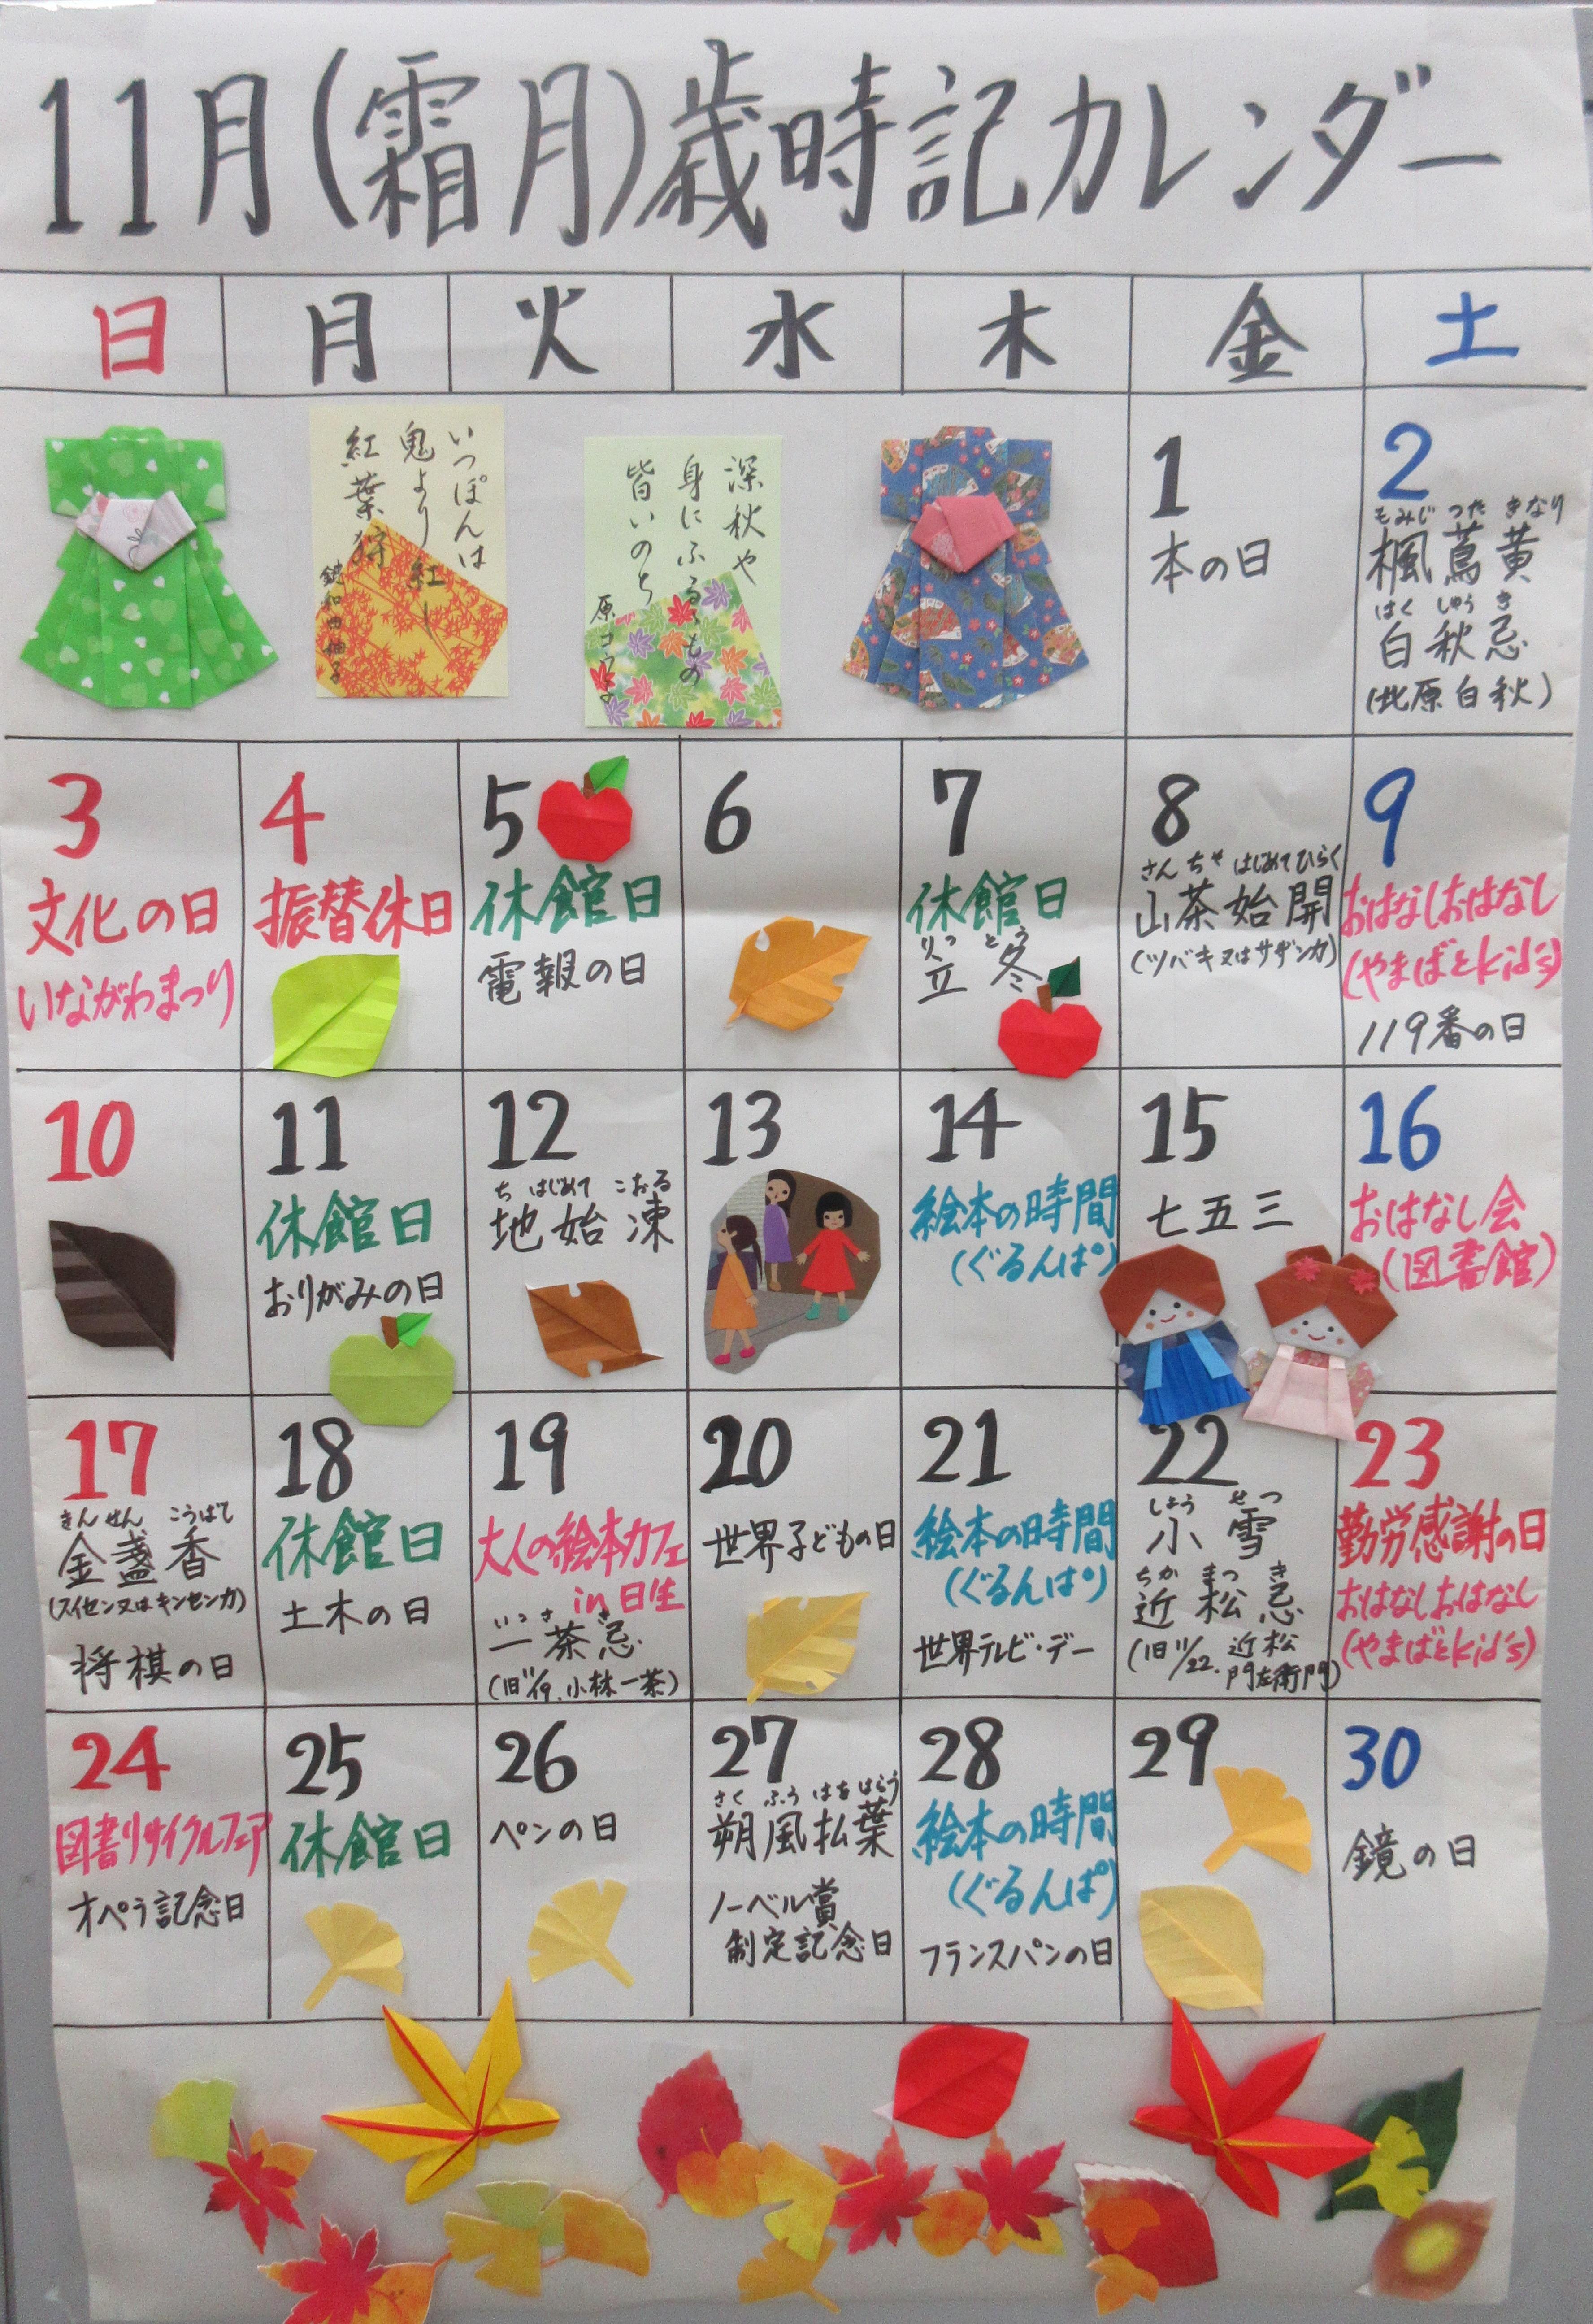 11月(霜月)歳時記カレンダー
日 月 火 水 木 金 土
いっぽんは
鬼より紅し
紅葉狩
深秋や
身にふるゝもの
皆いのち
原コウ子
1
本の日
2
もみじ つた きなり
楓蔦黄
はくしゅうき
白秋忌
(北原白秋)
3
文化の日
いながわまつり
4
振替休日
5
休館日
電報の日
6
7
休館日
りっとう
立冬
8
さんちゃ はじめてひらく
山茶始開
(ツバキ又はサザンカ)
9
おはなしおはなし
(やまばとkid's)
119番の日
10
11
休館日
おりがみの日
12
ち はじめて こおる
地始凍
13
14
絵本の時間
(ぐるんぱ)
15
七五三
16
おはなし会
(図書館)
17
きんせん こうばし
金盞香
(スイセン又はキンセンカ)
将棋の日
18
休館日
土木の日
19
大人の絵本カフェ
in日生
いっさき
一茶忌
(旧11/19.小林一茶)
20
世界子どもの日
21
絵本の時間
(ぐるんぱ)
世界テレビ・デー
22
しょうせつ
小雪
ちかまつき
近松忌
(旧11/22.近松
門左衛門)
23
勤労感謝の日
おはなしおはなし
(やまばとkid's)
24
図書リサイクルフェア
オペラ記念日
25
休館日
26
ペンの日
27
さくふう はをはらう
朔風払葉
ノーベル賞
制定記念日
28
絵本の時間
(ぐるんぱ)
フランスパンの日
29
30
鏡の日